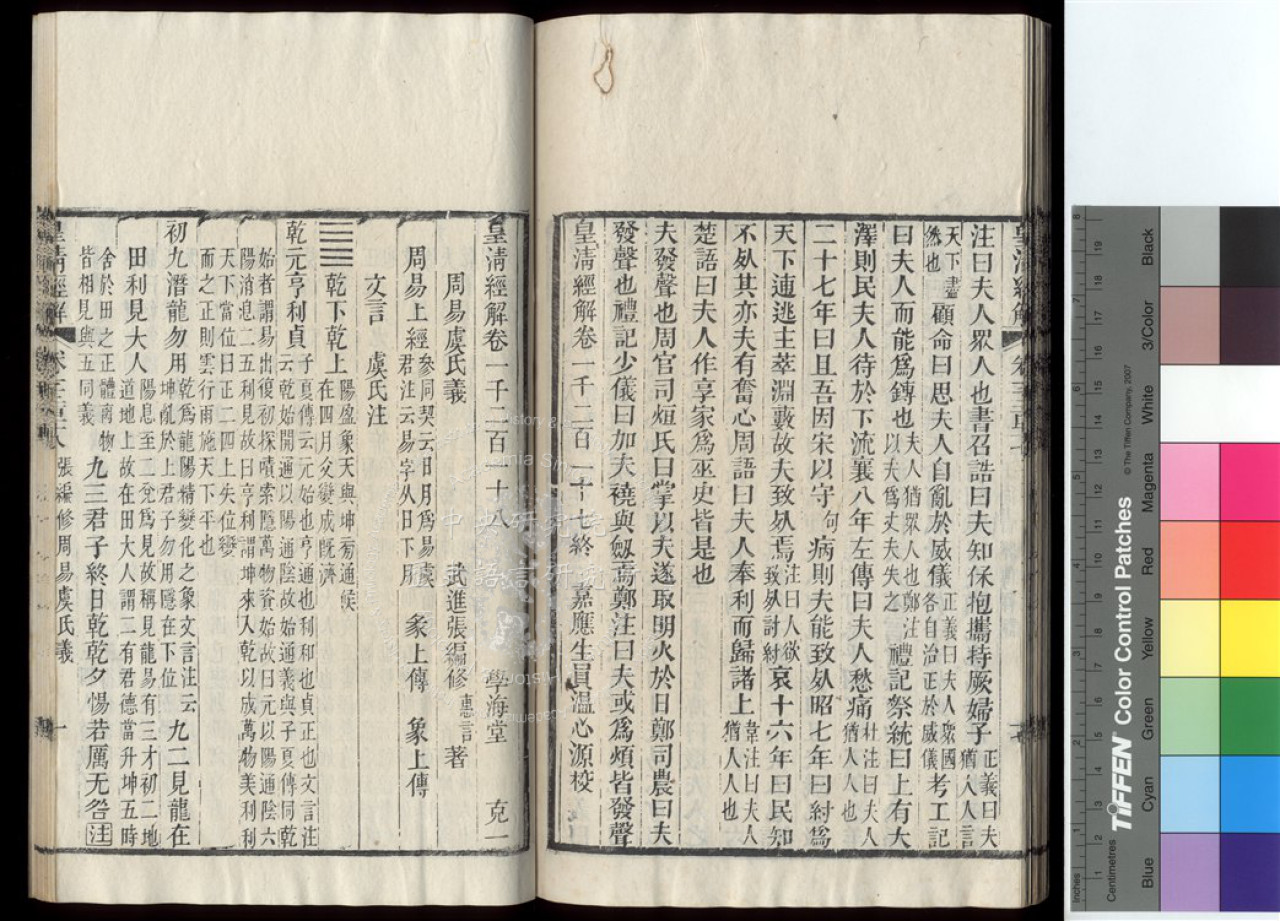 注曰夫人眾人也書召誥曰夫知保抱攜持厥婦子正義曰夫猶人人言
天下盡然也顧命曰思夫人自亂於威儀正義曰夫人眾國各自治正於威儀考工記
曰夫人而能爲鎛也夫人猶眾人也鄭注以夫爲丈夫失之禮記祭統曰上有大
澤則民夫人待於下流襄八年左傳曰夫人愁痛杜注曰夫人猶人人也
二十七年曰且吾因宋以守句病則夫能致死昭七年曰紂爲
天下逋逃主萃淵藪故夫致死焉注曰人欲致死討紂哀十六年曰民知
不死其亦夫有奮心周語曰夫人奉利而歸諸上韋注曰夫人猶人人也
楚語曰夫人作享家爲巫史皆是也
夫發聲也周官司烜氏曰掌以夫遂取明火於日鄭司農曰夫
發聲也禮記少儀曰加夫襓與劔焉鄭注曰夫或爲煩皆發聲
皇淸經解卷一千二百一十七終 嘉應生員溫心源校
皇淸經解卷一千二百一十八 學海堂 克一
周易虞氏義 武進張編修惠言著
周易上經參同契云日月爲易虞君注云易字从日下月 彖上傳 象上傳
文言 虞氏注
乾下乾上陽盈象天與坤㫄通候在四月爻變成旣濟
乾元亨利貞子夏傳云元始也亨通也利和也貞正也文言注云乾始開通以陽通陰故始通義與子夏傳同乾
始者謂易出復初探嘖索隱萬物資始故曰元以陽通陰六
陽消息二五利見故曰亨利謂坤來入乾以成萬物美利利
天下當位曰正二四上失位變
而之正則雲行雨施天下平也
初九潛龍勿用乾爲龍陽精變化之象文言注云坤亂於上君子勿用隱在下位九二見龍在
田利見大人陽息至二兌爲見故稱見龍易有三才初二地道地上故在田大人謂二有君德當升坤五時
舍於田之正體離物皆相見與五同義九三君子終日乾乾夕惕若厲无咎注
皇淸經解 張編修周易虞氏義 一
Centimetres
Inches
TIFFEN Color Control Patches
© The Tiffen Company, 2007
Blue Cyan Green Yellow Red Magenta White 3/Color Black